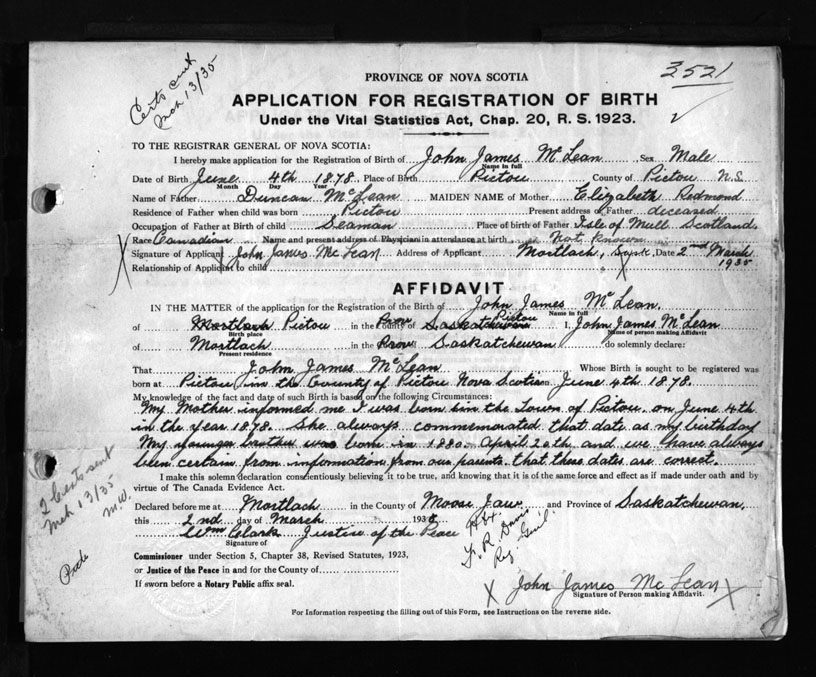 Certs sent
Mch 13/35
3521
PROVINCE OF NOVA SCOTIA
APPLICATION FOR REGISTRATION OF BIRTH
Under the Vital Statistics Act, Chap. 20, R. S. 1923.
TO THE REGISTRAR GENERAL OF NOVA SCOTIA:
I hereby make application for the Registration of Birth of John James McLean Sex Male
Name in full
Date of Birth June 4th 1878. Place of Birth Pictou County of Pictou N.S
Month Day Year
Name of Father Duncan McLean MAIDEN NAME of Mother Elizabeth Redmond
Residence of Father when child was born Pictou Present address of Father diceased
Occupation of Father at Birth of child Seaman Place of birth of Father Isle of Mull Scotland.
Race Canadian Name and present address of Physician in attendance at birth Not known
Signature of Applicant John James McLean Address of Applicant Mortlach, Sask, Date 2nd March
1935
Relationship of Applicant to child
AFFIDAVIT
IN THE MATTER of the application for the Registration of the Birth of John James McLean.
Name in full
of Mortlach Pictou in the County of Prov Saskatchewan Pictou I, John James McLean
Birth place Name of person making affidavit
of Mortlach in the Prov Saskatchewan do solemnly declare:
Present residence
That John James McLean Whose Birth is sought to be registered was
born at Pictou in the County of Pictou Nova Scotia June 4th 1878.
My knowledge of the fact and date of such Birth is based on the following Circumstances:
My Mother informed me I was born in the Town of Pictou on June 4th
in the year 1878. She always commemorated that date as my birthday
My younger brother was born in 1880 April 20th and we have always
been certain from information from our parents that these dates are correct.
I make this solemn declaration conscientiously believing it to be true, and knowing that it is of the same force and effect as if made under oath and by
virtue of The Canada Evidence Act.
2 Certs sent
Mch 13/35
M.W.
Declared before me at Mortlach in the County of Moose Jaw and Province of Saskatchewan,
this 2nd day of March 1935
Wm Clark Justice of the Peace
Signature of
Commissioner under Section 5, Chapter 38, Revised Statutes, 1923,
or Justice of the Peace in and for the County of
If sworn before a Notary Public affix seal.
Reg. Genl.
X John James McLean X
Signature of Person making Affidavit.
For Information respecting the filling out of this Form, see Instructions on the reverse side.